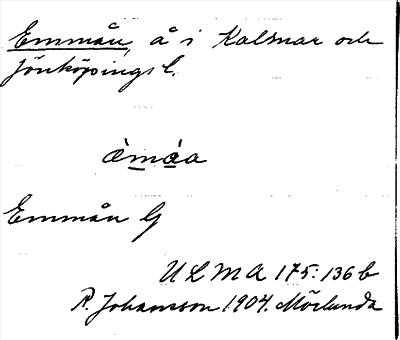 Emmån, å i Kalmar och
Jönköpings l.
ѐmåa
Emmån G
ULMA 175:136b
R. Johansson 1904. Mörlunda